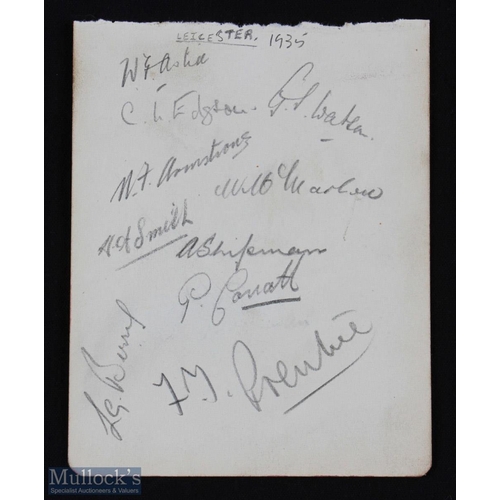 LEICESTER. 1935
W E Astill
C. L Edgson. G. S. Watson.
N. F. Armstrong
W H Marlow
H A Smith
A Shipman
G. Garratt
L G. Berry
F. T. Prentice
Mullock's
Specialist Auctioneers & Valuers